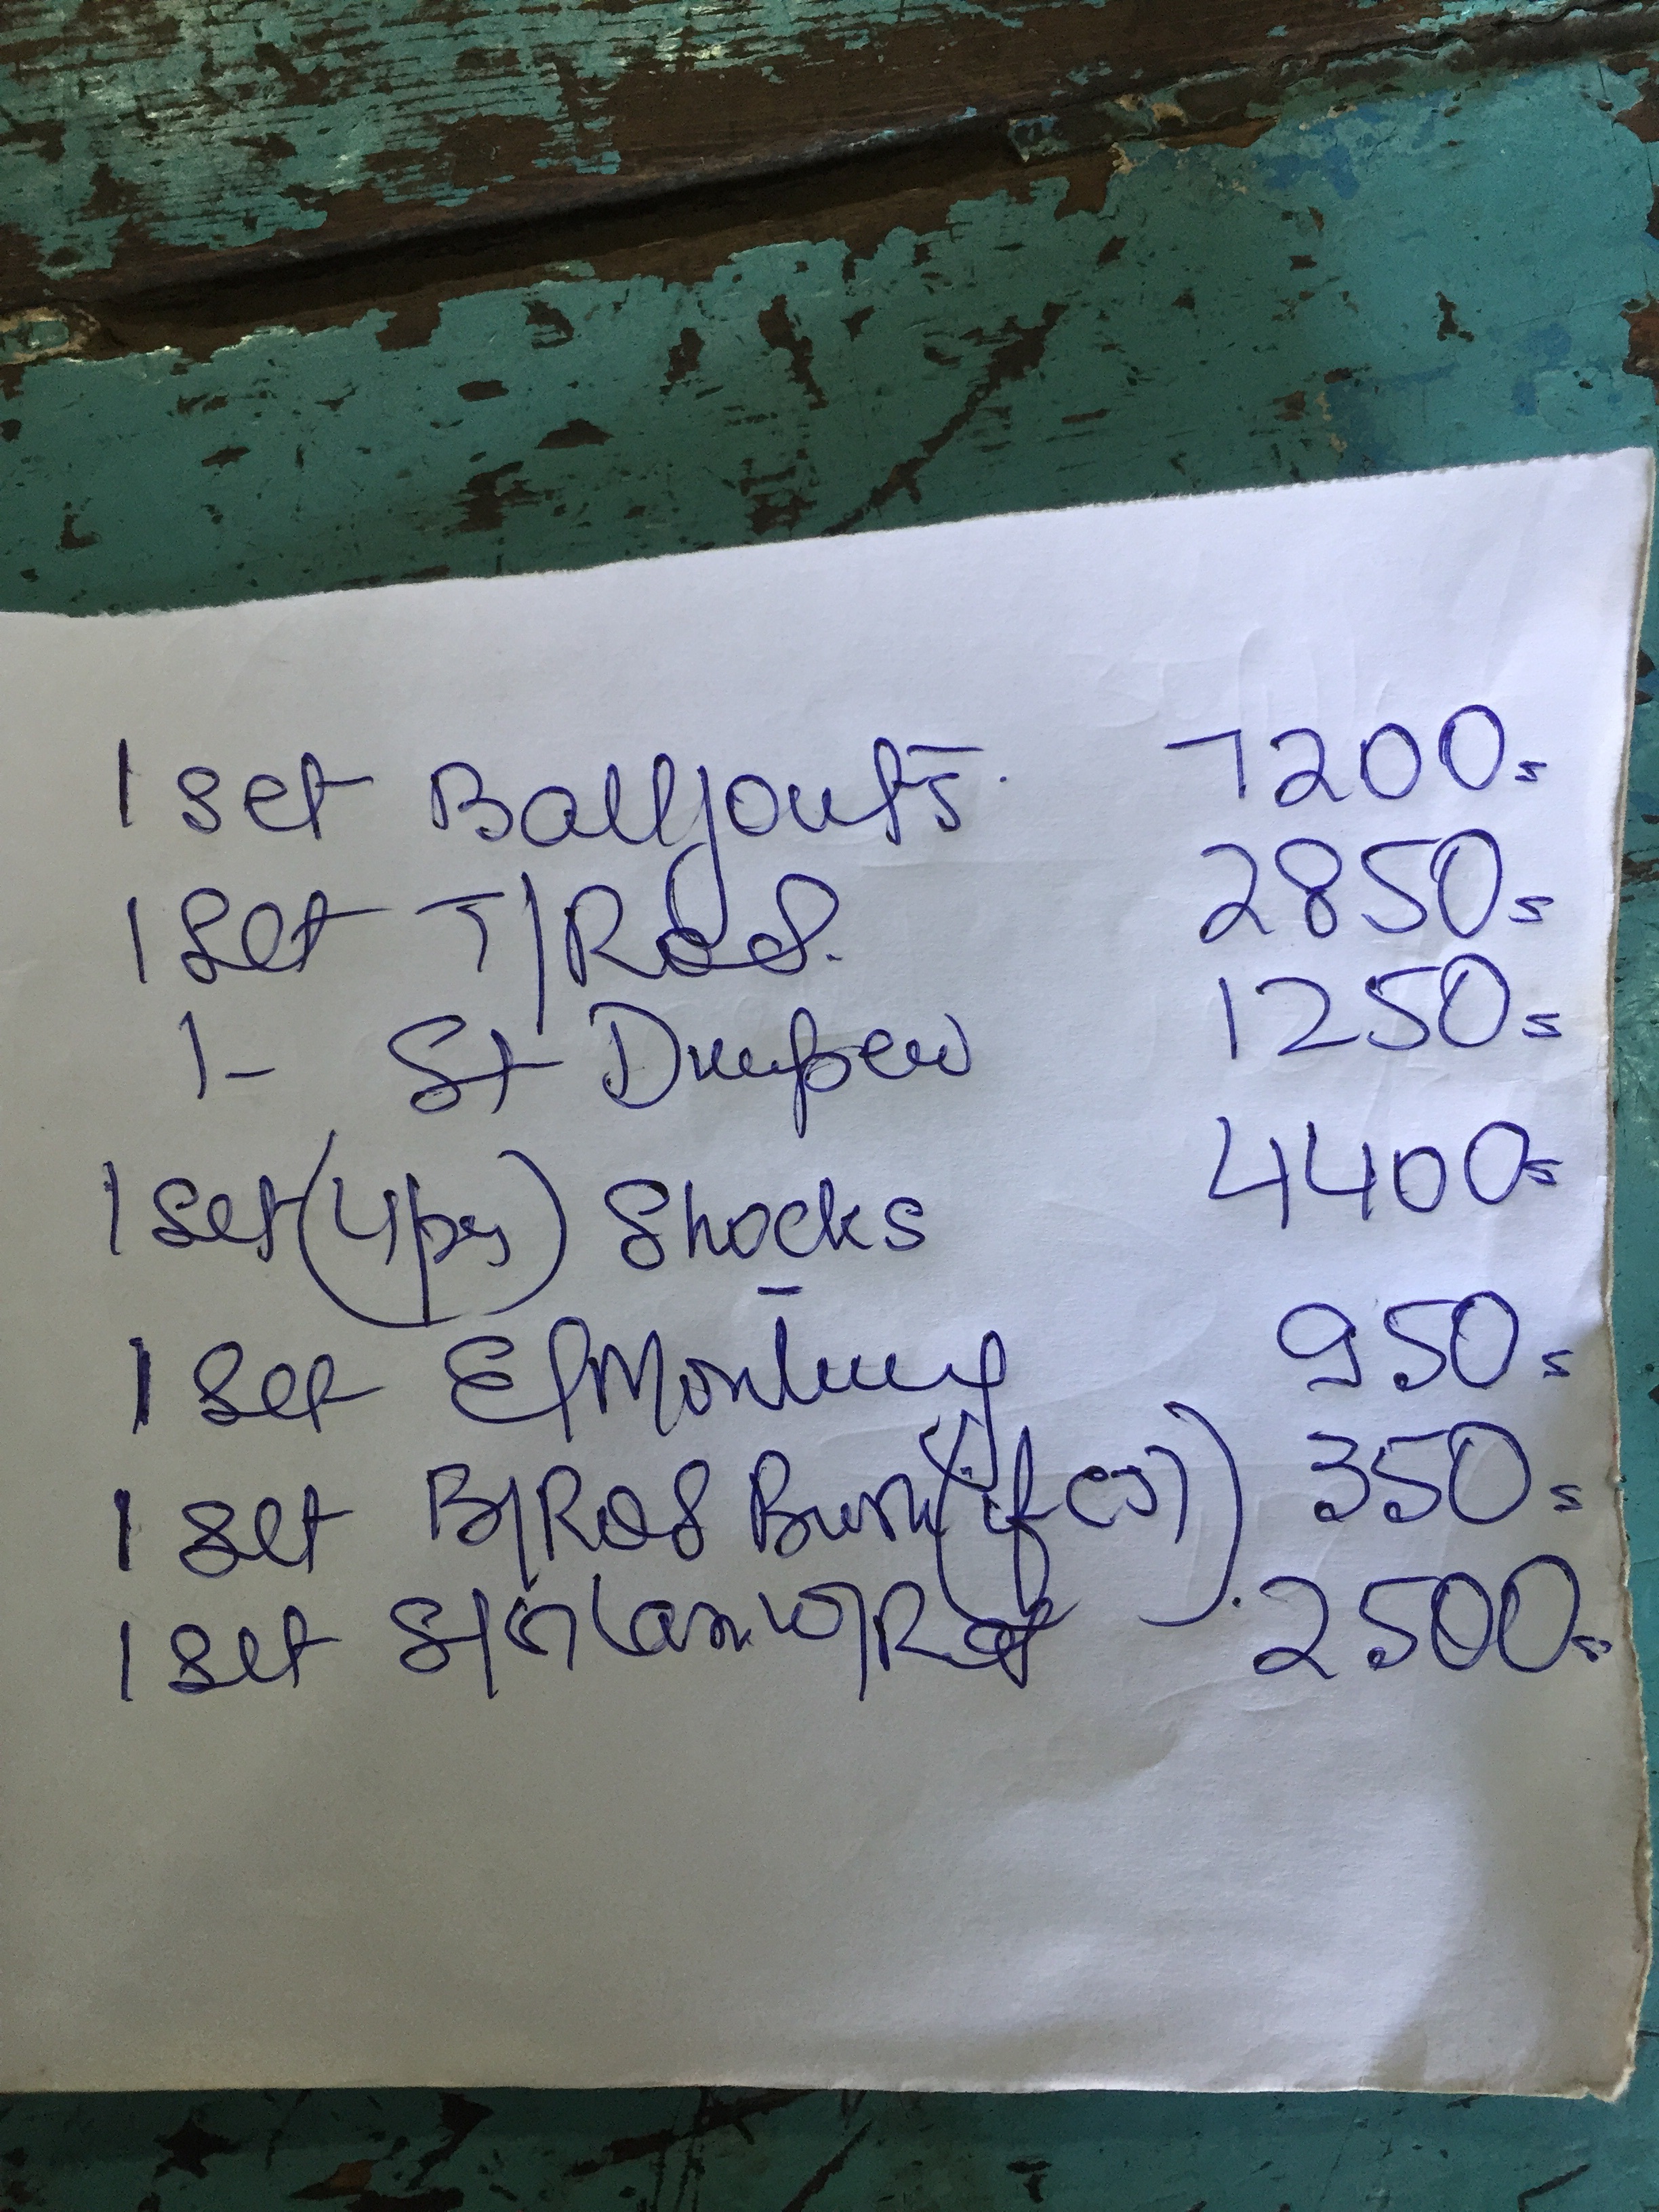 1 set Balljoints. 7200=
1 Set T/Rod. 2850=
1- St Dumper 1250=
1 set (4 pcs) Shocks 4400=
1 set E/Monting 950=
1 set B/Rod Bush 350=
1 set 2500=